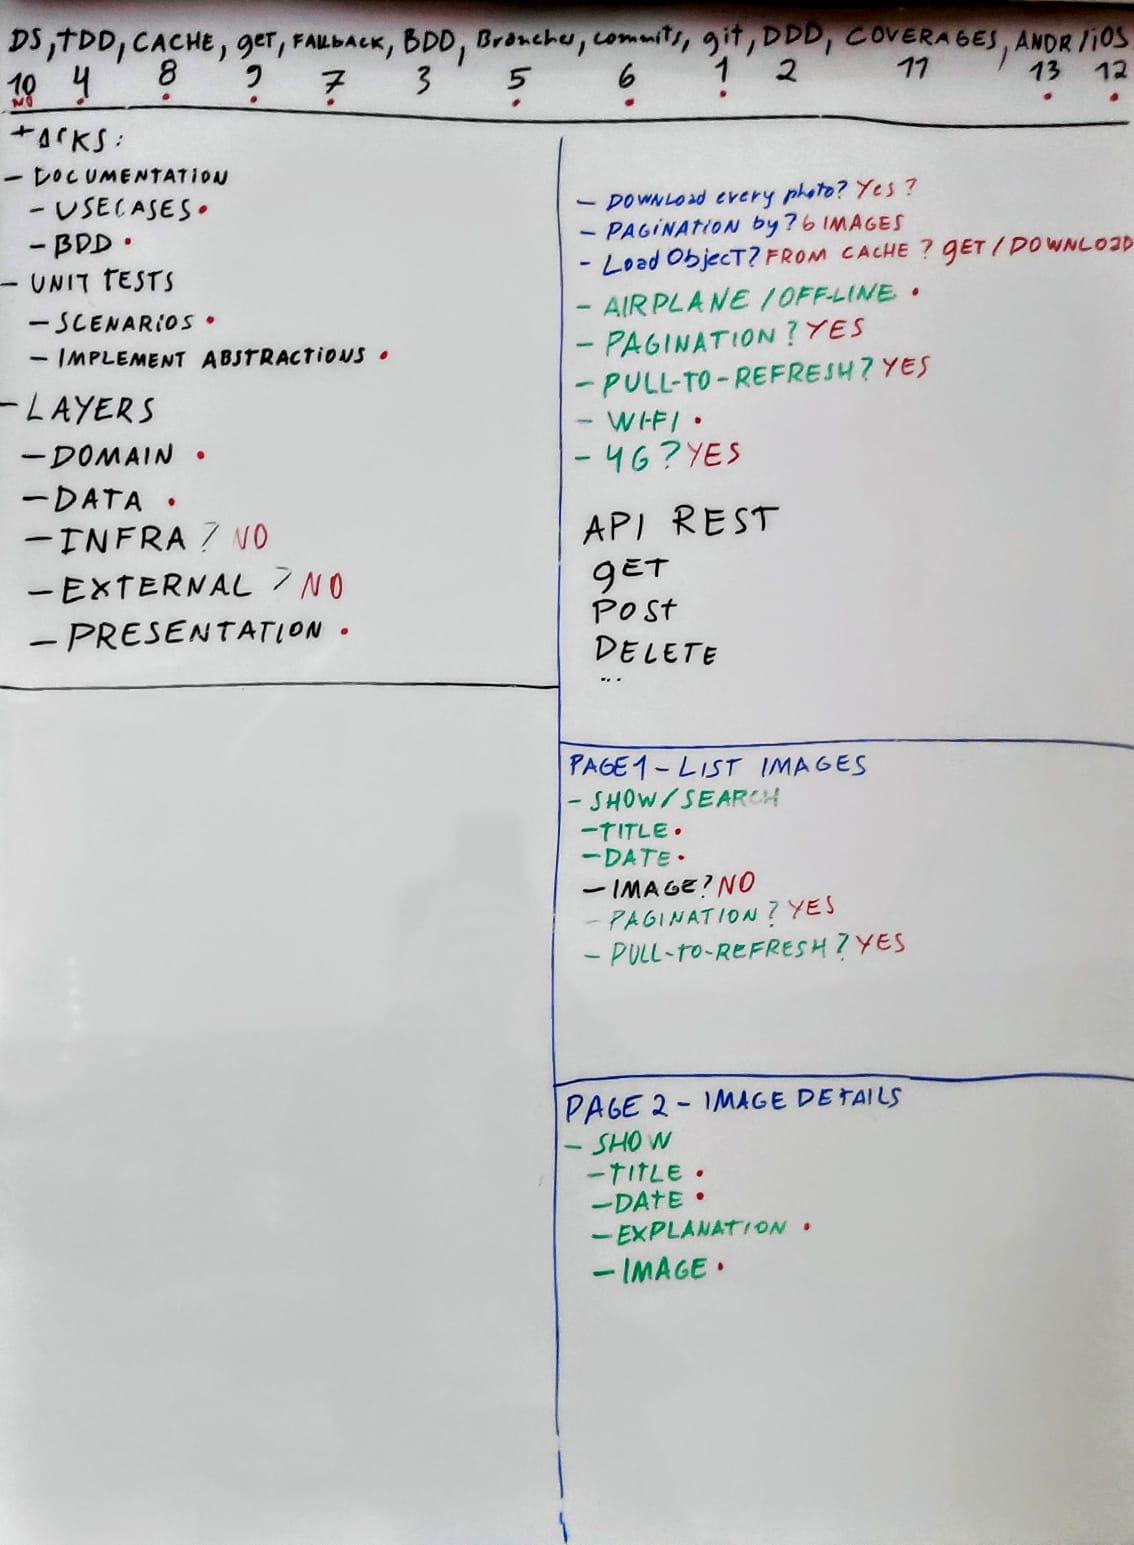 DS, TDD, CACHE, get, FALLBACK, BDD, Branches, commits, git, DDD, COVERAGES, ANDR/iOS
10 4 8 9 7 3 5 6 1 2 11 13 12
NO
TASKS:
- DOCUMENTATION
- USECASES •
- BDD •
- UNIT TESTS
- SCENARIOS •
- IMPLEMENT ABSTRACTIONS •
- LAYERS
- DOMAIN •
- DATA •
- INFRA? NO
- EXTERNAL? NO
- PRESENTATION •
- DOWNLOad every photo? Yes?
- PAGINATION by? 6 IMAGES
- Load ObjecT? FROM CACHE? gET/DOWNLOAD
- AIRPLANE/OFF-LINE •
- PAGINATION? YES
- PULL-TO-REFRESH? YES
- WI-FI •
- 4G? YES
API REST
gET
POST
DELETE
...
PAGE 1 - LIST IMAGES
- SHOW/SEARCH
- TITLE •
- DATE •
- IMAGE? NO
- PAGINATION? YES
- PULL-TO-REFRESH? YES
PAGE 2 - IMAGE DETAILS
- SHOW
- TITLE •
- DATE •
- EXPLANATION •
- IMAGE •